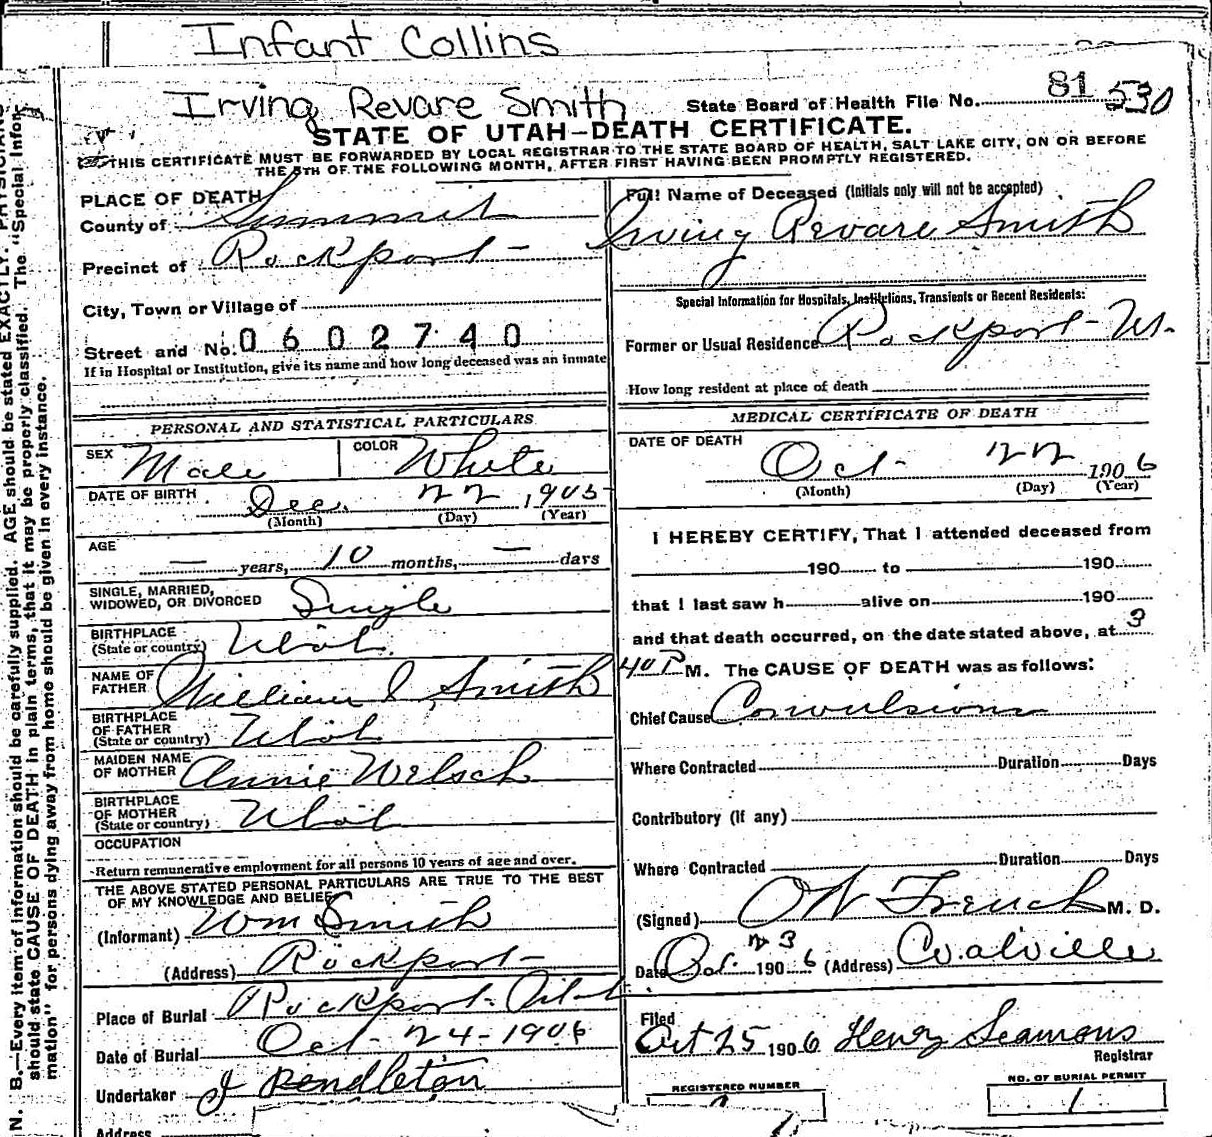 Infant Collins
Irving Revare Smith
State Board of Health File No. 81 530
STATE OF UTAH—DEATH CERTIFICATE.
THIS CERTIFICATE MUST BE FORWARDED BY LOCAL REGISTRAR TO THE STATE BOARD OF HEALTH, SALT LAKE CITY, ON OR BEFORE
THE 5TH OF THE FOLLOWING MONTH, AFTER FIRST HAVING BEEN PROMPTLY REGISTERED.
PLACE OF DEATH
County of Summit
Precinct of Rockport
City, Town or Village of
Street and No. 0602740
If in Hospital or Institution, give its name and how long deceased was an inmate
PERSONAL AND STATISTICAL PARTICULARS
SEX Male COLOR White
DATE OF BIRTH Dec. 22, 1905
(Month) (Day) (Year)
AGE
— years, 10 months, — days
SINGLE, MARRIED,
WIDOWED, OR DIVORCED Single
BIRTHPLACE
(State or country) Utah.
NAME OF
FATHER William I Smith
BIRTHPLACE
OF FATHER
(State or country) Utah
MAIDEN NAME
OF MOTHER Annie Welsch
BIRTHPLACE
OF MOTHER
(State or country) Utah
OCCUPATION
Return remunerative employment for all persons 10 years of age and over.
THE ABOVE STATED PERSONAL PARTICULARS ARE TRUE TO THE BEST
OF MY KNOWLEDGE AND BELIEF
(Informant) Wm Smith
(Address) Rockport
Place of Burial Rockport Utah
Date of Burial Oct-24-1906
Undertaker J Pendleton
Address
Full Name of Deceased (Initials only will not be accepted)
Irving Revare Smith
Special Information for Hospitals, Institutions, Transients or Recent Residents:
Former or Usual Residence Rockport-Ut.
How long resident at place of death
MEDICAL CERTIFICATE OF DEATH
DATE OF DEATH
Oct- 22 1906
(Month) (Day) (Year)
I HEREBY CERTIFY, That I attended deceased from
190 to 190
that I last saw h alive on 190
and that death occurred, on the date stated above, at 3
40 P M. The CAUSE OF DEATH was as follows:
Chief Cause Convulsions
Where Contracted Duration Days
Contributory (if any)
Where Contracted Duration Days
(Signed) O W French M. D.
Date Oct. 23 1906 (Address) Coalville
Filed
Oct 25 1906 Henry Seamons
Registrar
REGISTERED NUMBER
NO. OF BURIAL PERMIT
1
N. B.—Every item of information should be carefully supplied. AGE should be stated EXACTLY. PHYSICIANS
should state CAUSE OF DEATH in plain terms, that it may be properly classified. The "Special Infor-
mation" for persons dying away from home should be given in every instance.